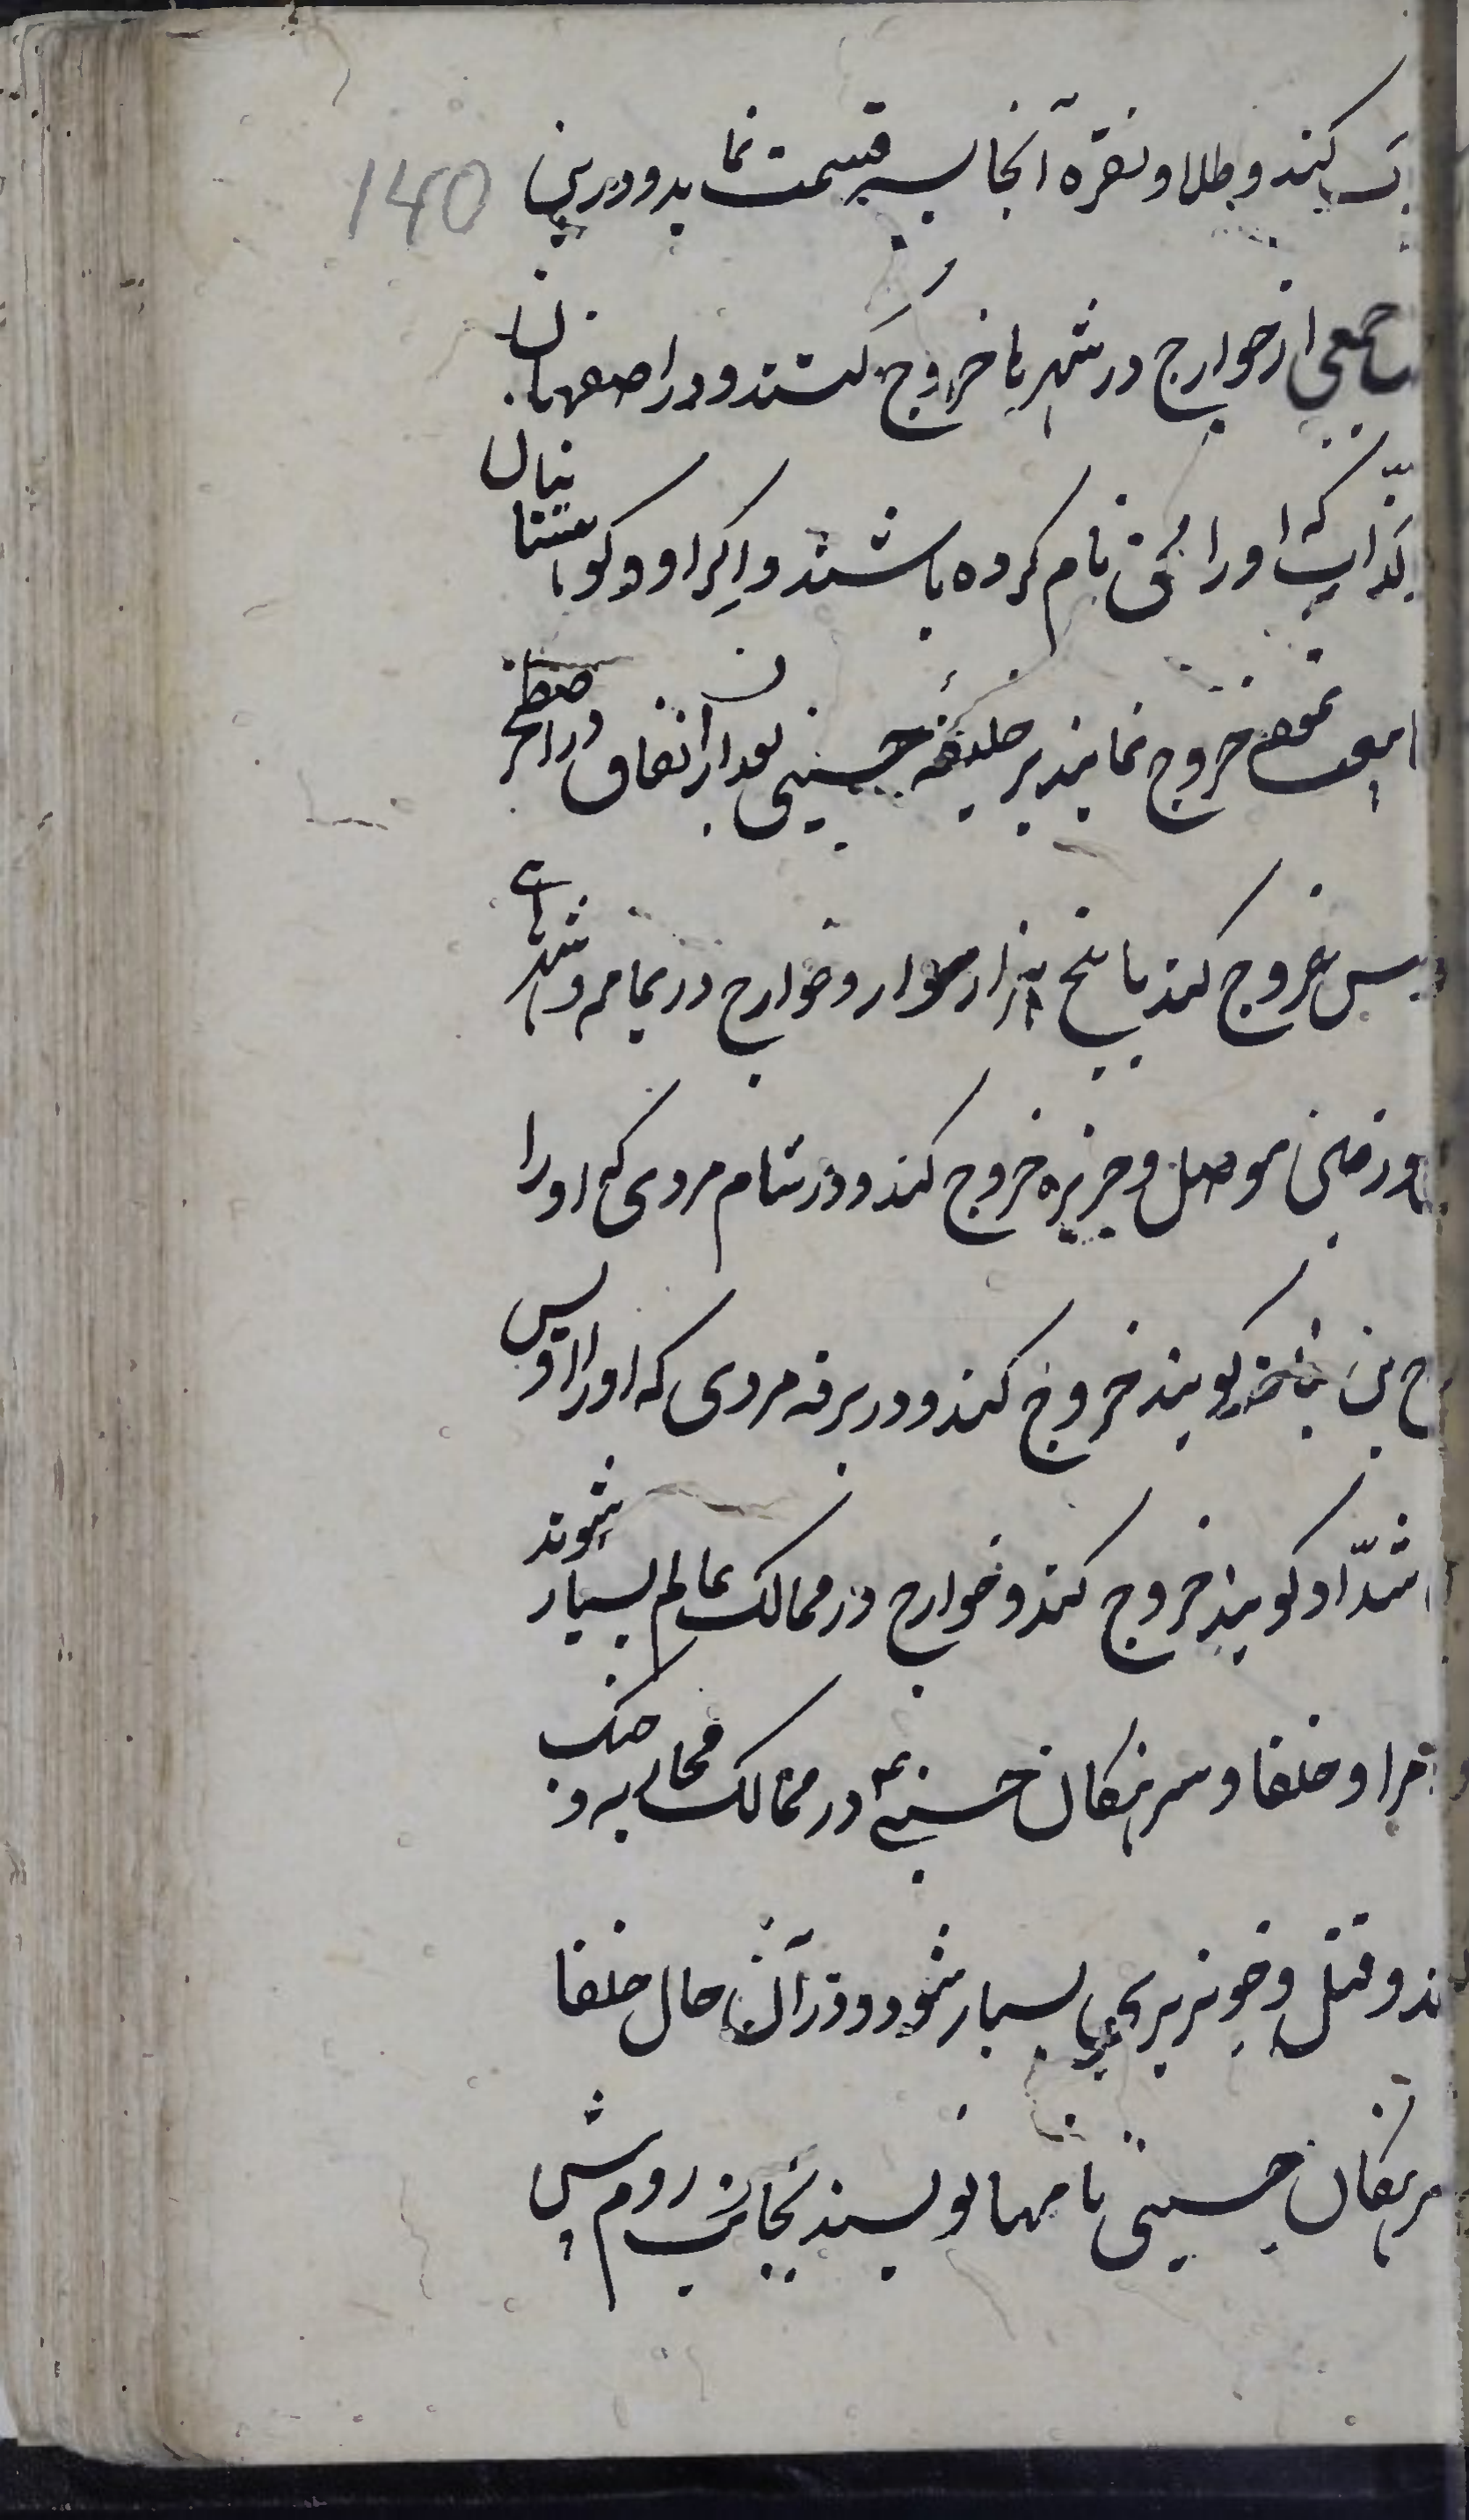 140
کنند و طلا و نقره آنجا بسپر قسمت نماید و درین
جمعی از خوارج در شهرها خروج کنند و در اصفهان
کذاب که او را بحق نام کرده باشند و اکراد و کوهستانیان
خروج نمایند بر خلیفه حسینی بعد از آن نفاق در اصطخر
خروج کند با پنج هزار سوار و خوارج در یمامه و
و در زمین موصل و جزیره خروج کند و در شام مردی که او را
بن گویند خروج کند و در برقه مردی که او را اوس
شداد گویند خروج کند و خوارج در ممالک عالم بسیار شوند
و خلفا و سرهنگان حسینی در ممالک محاربه و جنک
ند و قتل و خونریزی بسیار شود و در آن حال خلفا
سرهنگان حسینی نامها نویسند بجانب روم پیش